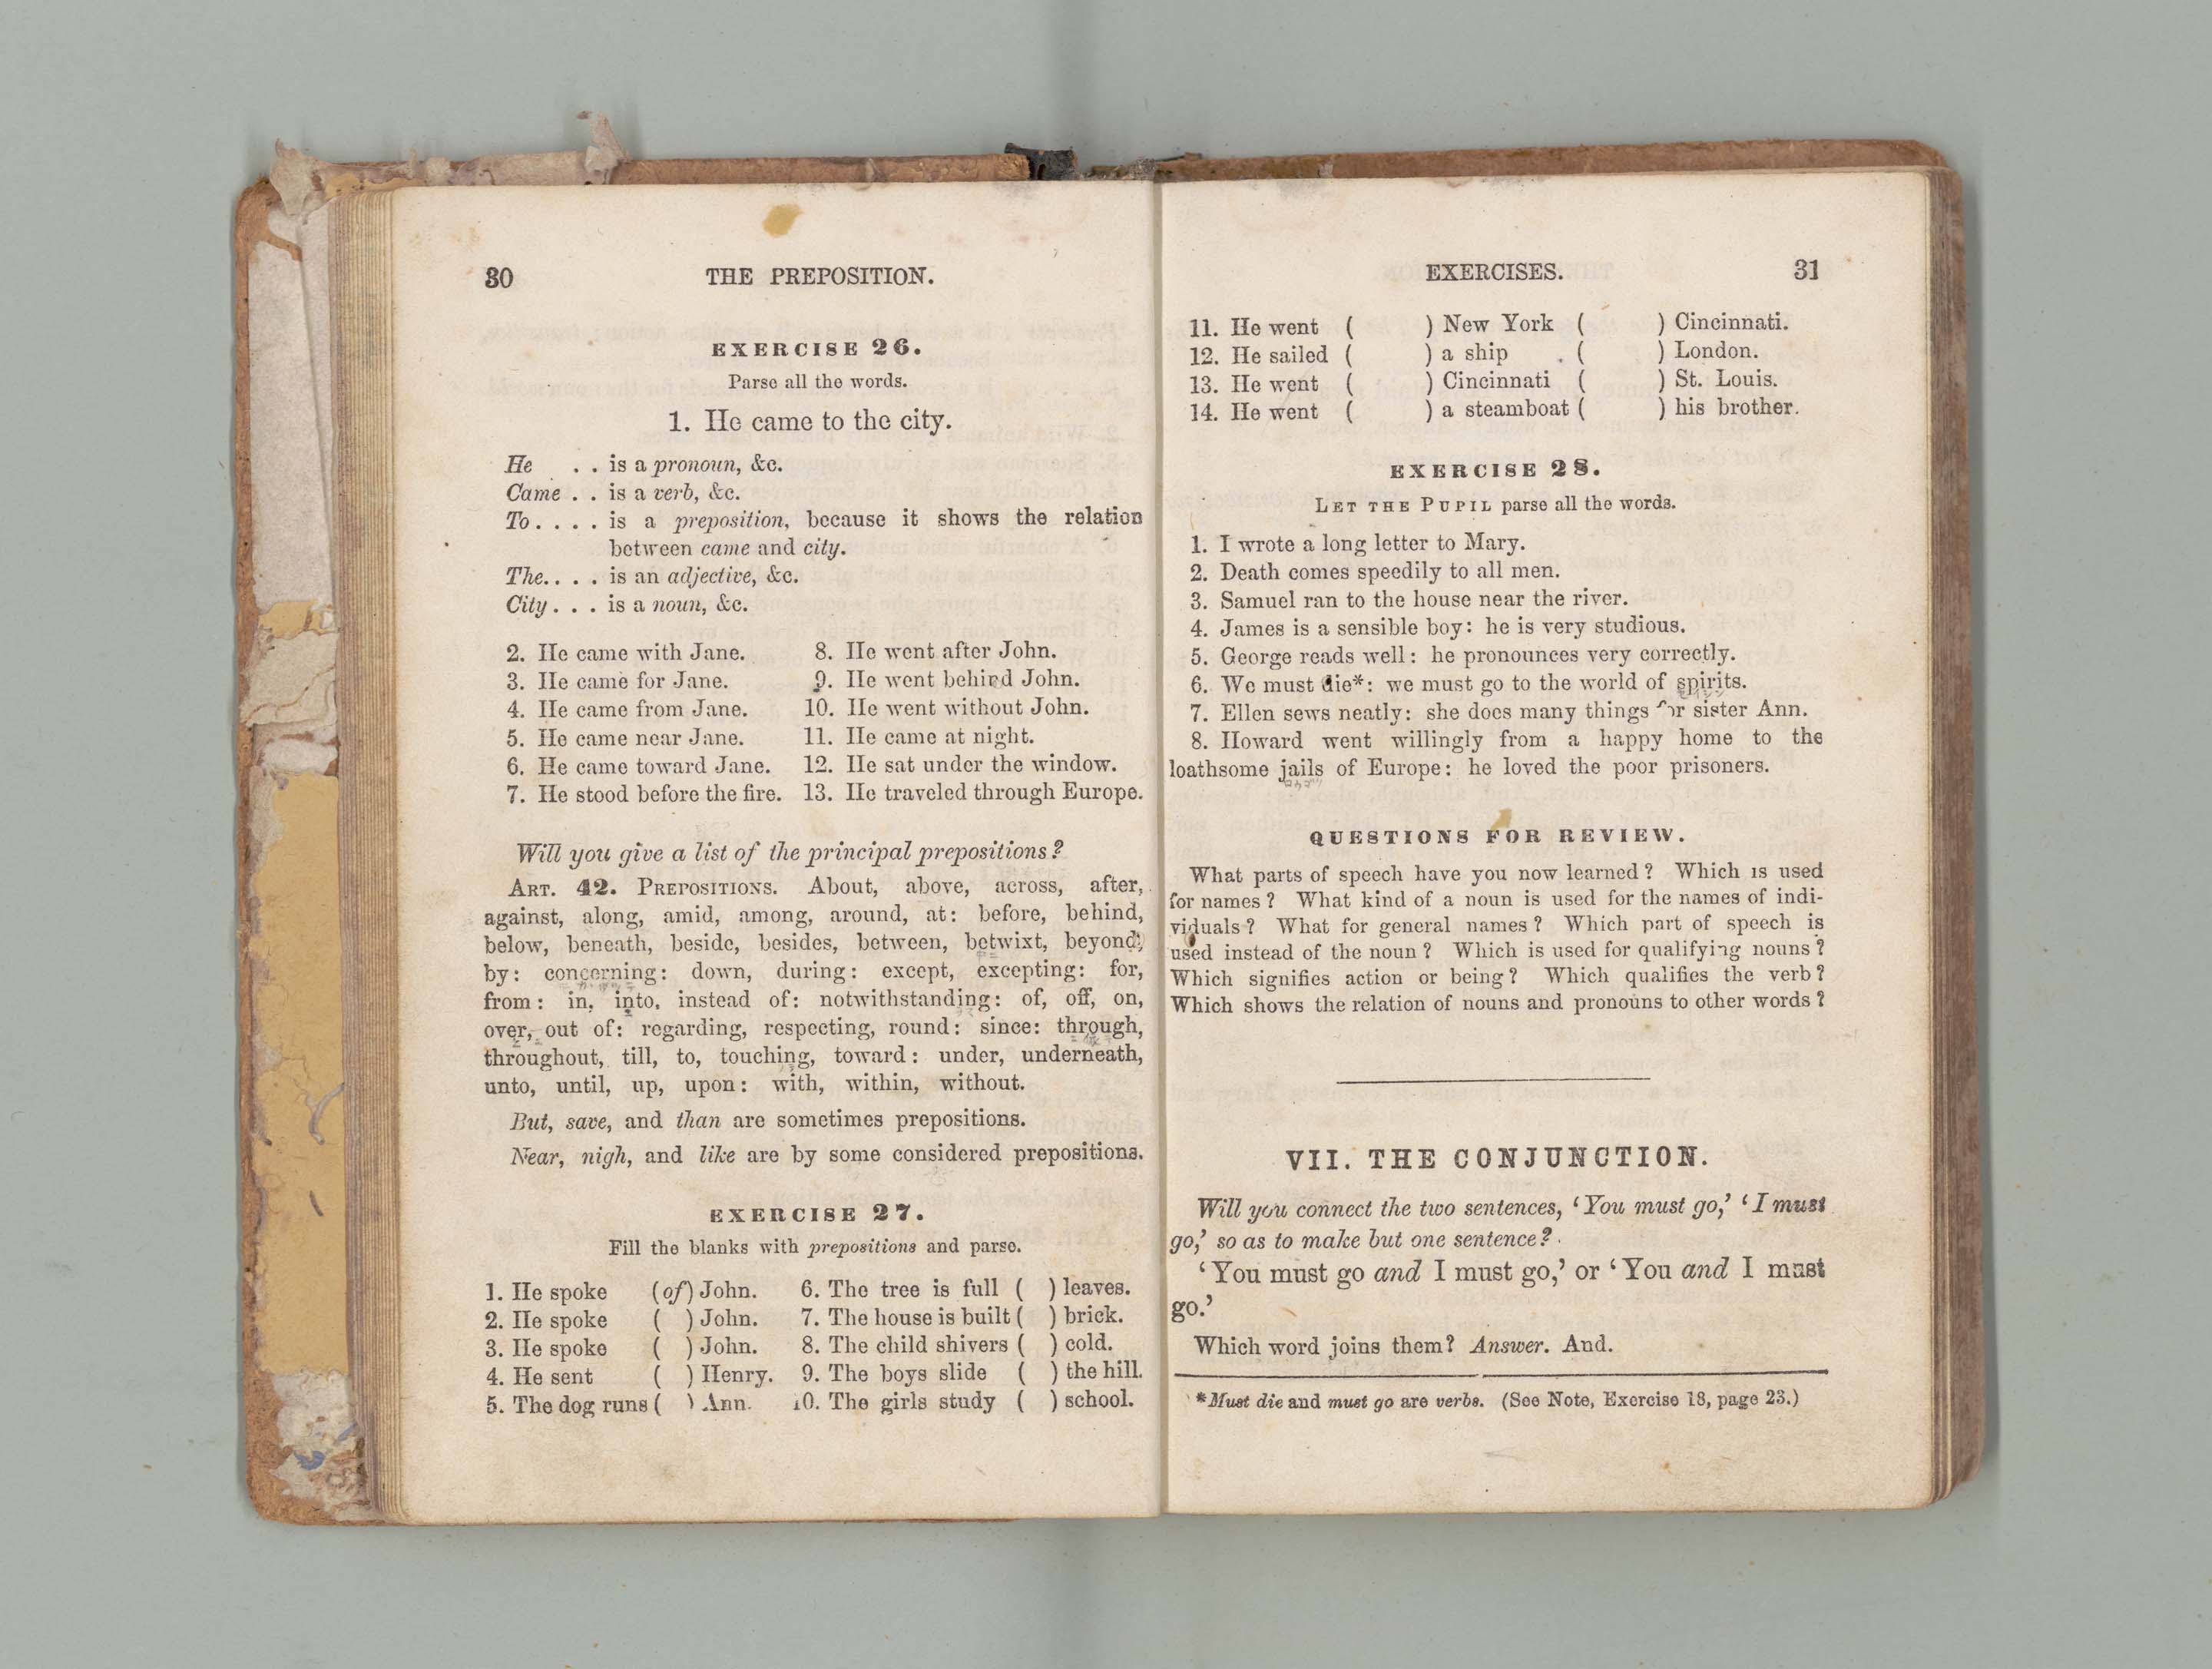 30 THE PREPOSITION.
EXERCISE 26.
Parse all the words.
1. He came to the city.
He . . is a pronoun, &c.
Came . . is a verb, &c.
To. . . . is a preposition, because it shows the relation
between came and city.
The. . . . is an adjective, &c.
City . . . is a noun, &c.
2. He came with Jane. 8. He went after John.
3. He came for Jane. 9. He went behind John.
4. He came from Jane. 10. He went without John.
5. He came near Jane. 11. He came at night.
6. He came toward Jane. 12. He sat under the window.
7. He stood before the fire. 13. He traveled through Europe.
Will you give a list of the principal prepositions?
ART. 42. PREPOSITIONS. About, above, across, after,
against, along, amid, among, around, at: before, behind,
below, beneath, beside, besides, between, betwixt, beyond;
by: concerning: down, during: except, excepting: for,
from: in, into, instead of: notwithstanding: of, off, on,
over, out of: regarding, respecting, round: since: through,
throughout, till, to, touching, toward: under, underneath,
unto, until, up, upon: with, within, without.
But, save, and than are sometimes prepositions.
Near, nigh, and like are by some considered prepositions.
EXERCISE 27.
Fill the blanks with prepositions and parse.
1. He spoke (of) John. 6. The tree is full ( ) leaves.
2. He spoke ( ) John. 7. The house is built ( ) brick.
3. He spoke ( ) John. 8. The child shivers ( ) cold.
4. He sent ( ) Henry. 9. The boys slide ( ) the hill.
5. The dog runs ( ) Ann. 10. The girls study ( ) school.
EXERCISES. 31
11. He went ( ) New York ( ) Cincinnati.
12. He sailed ( ) a ship ( ) London.
13. He went ( ) Cincinnati ( ) St. Louis.
14. He went ( ) a steamboat ( ) his brother.
EXERCISE 28.
LET THE PUPIL parse all the words.
1. I wrote a long letter to Mary.
2. Death comes speedily to all men.
3. Samuel ran to the house near the river.
4. James is a sensible boy: he is very studious.
5. George reads well: he pronounces very correctly.
6. We must die*: we must go to the world of spirits.
7. Ellen sews neatly: she does many things for sister Ann.
8. Howard went willingly from a happy home to the
loathsome jails of Europe: he loved the poor prisoners.
QUESTIONS FOR REVIEW.
What parts of speech have you now learned? Which is used
for names? What kind of a noun is used for the names of indi-
viduals? What for general names? Which part of speech is
used instead of the noun? Which is used for qualifying nouns?
Which signifies action or being? Which qualifies the verb?
Which shows the relation of nouns and pronouns to other words?
VII. THE CONJUNCTION.
Will you connect the two sentences, ‘You must go,’ ‘I must
go,’ so as to make but one sentence?
‘You must go and I must go,’ or ‘You and I must
go.’
Which word joins them? Answer. And.
*Must die and must go are verbs. (See Note, Exercise 18, page 23.)